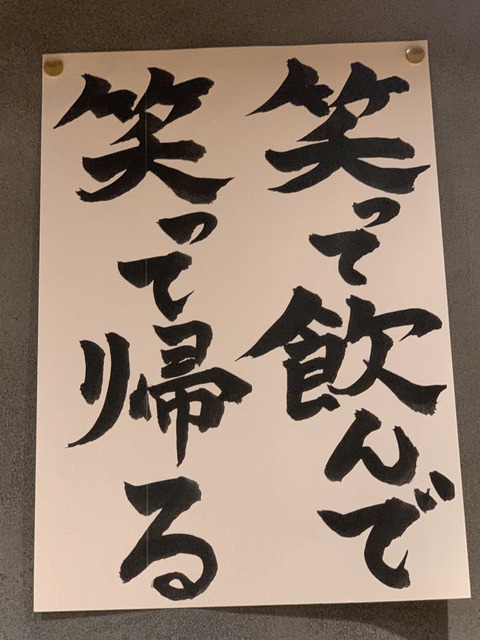 笑って飲んで
笑って帰る